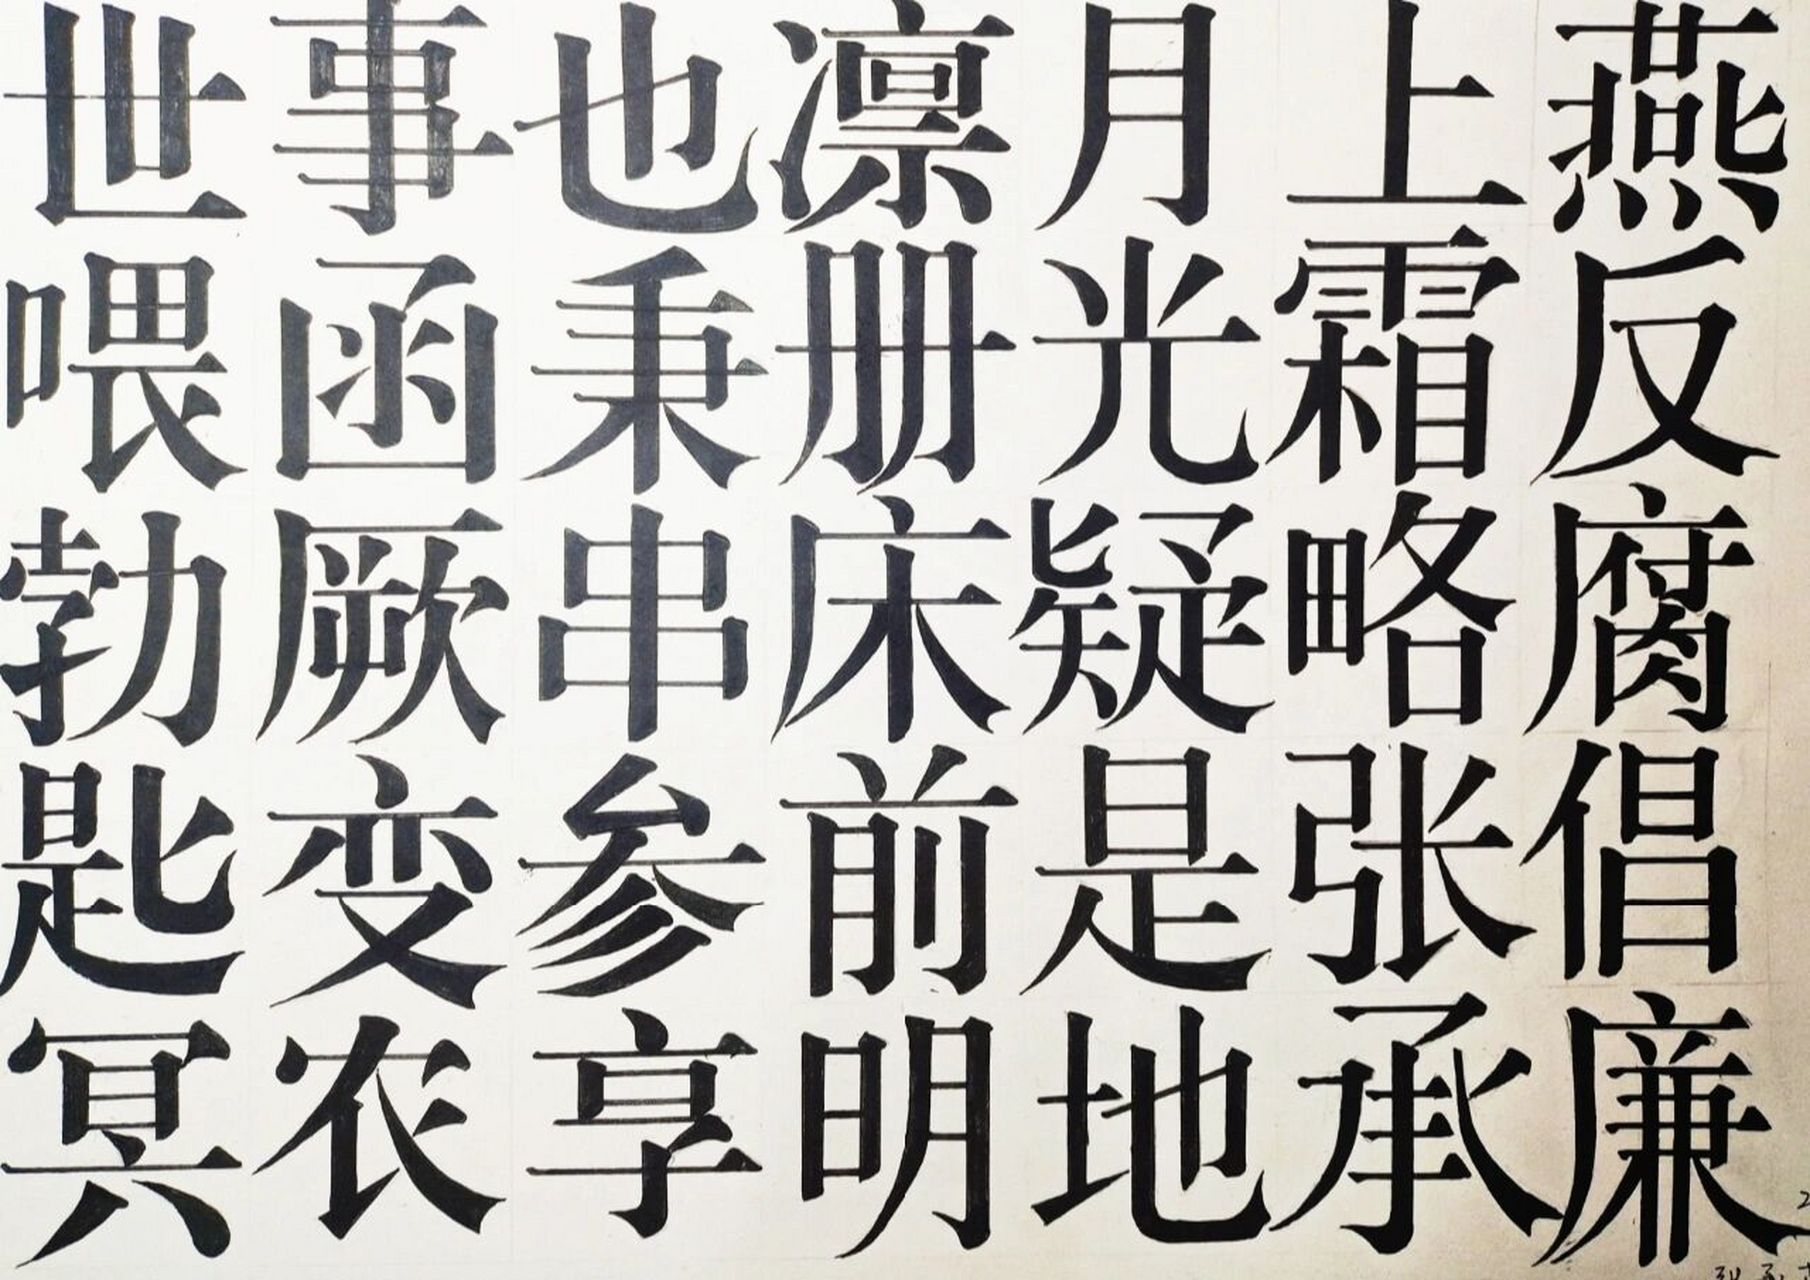 世喂勃匙冥
事函厥变农
也秉串参享
凛册床前明
月光疑是地
上霜略张承
燕反腐倡廉